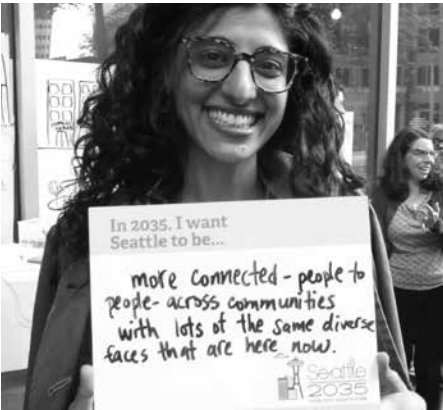 In 2035, I want
Seattle to be...
more connected - people to
people - across communities
with lots of the same diverse
faces that are here now.
Seattle
2035